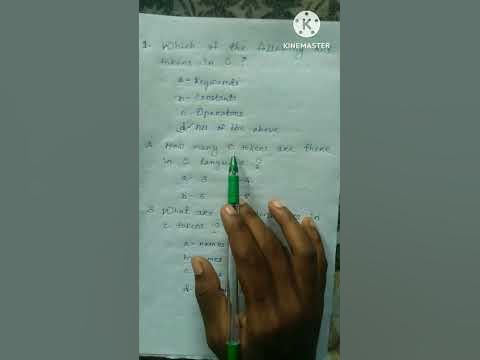 KINEMASTER
1. Which of the following are
tokens in C ?
a- Keywords
b- Constants
c- Operators
d- All of the above
2. How many C tokens are there
in C language ?
a- 3
b- 5
3. What are in
C tokens ?
a- names